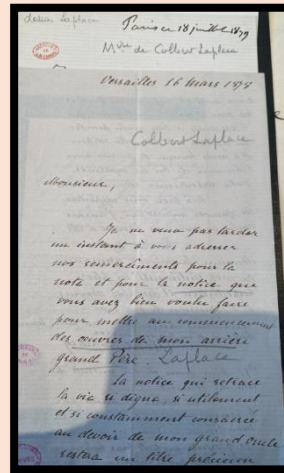 Laplace
Paris ce 18 juillet 1879
Mise de Colbert Laplace
Versailles 16 Mars 1878
Colbert Laplace
Monsieur,
Je ne veux pas tarder
un instant à vous adresser
nos remerciments pour la
note et pour la notice que
vous avez bien voulu faire
pour mettre au commencement
des œuvres de mon arrière
grand Père. Laplace
La notice qui retrace
la vie si digne, si utilement
et si constamment consacrée
au devoir de mon grand oncle
restera un titre précieux